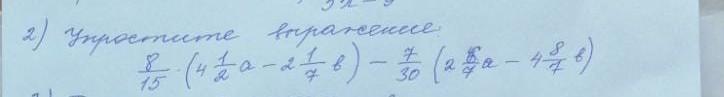 2) Упростите выражение:
8/15 · (4 1/2 а − 2 1/7 в) − 7/30 (2 6/7 а − 4 8/7 в)